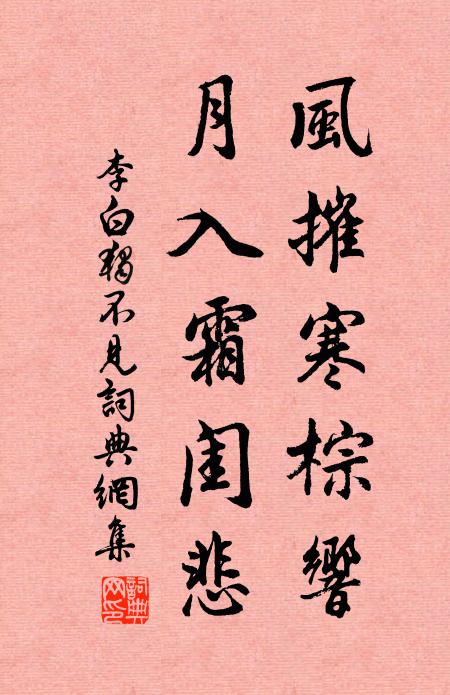 風摧寒棕響
月入霜闺悲
李白獨不見詞典網集
詞典網印